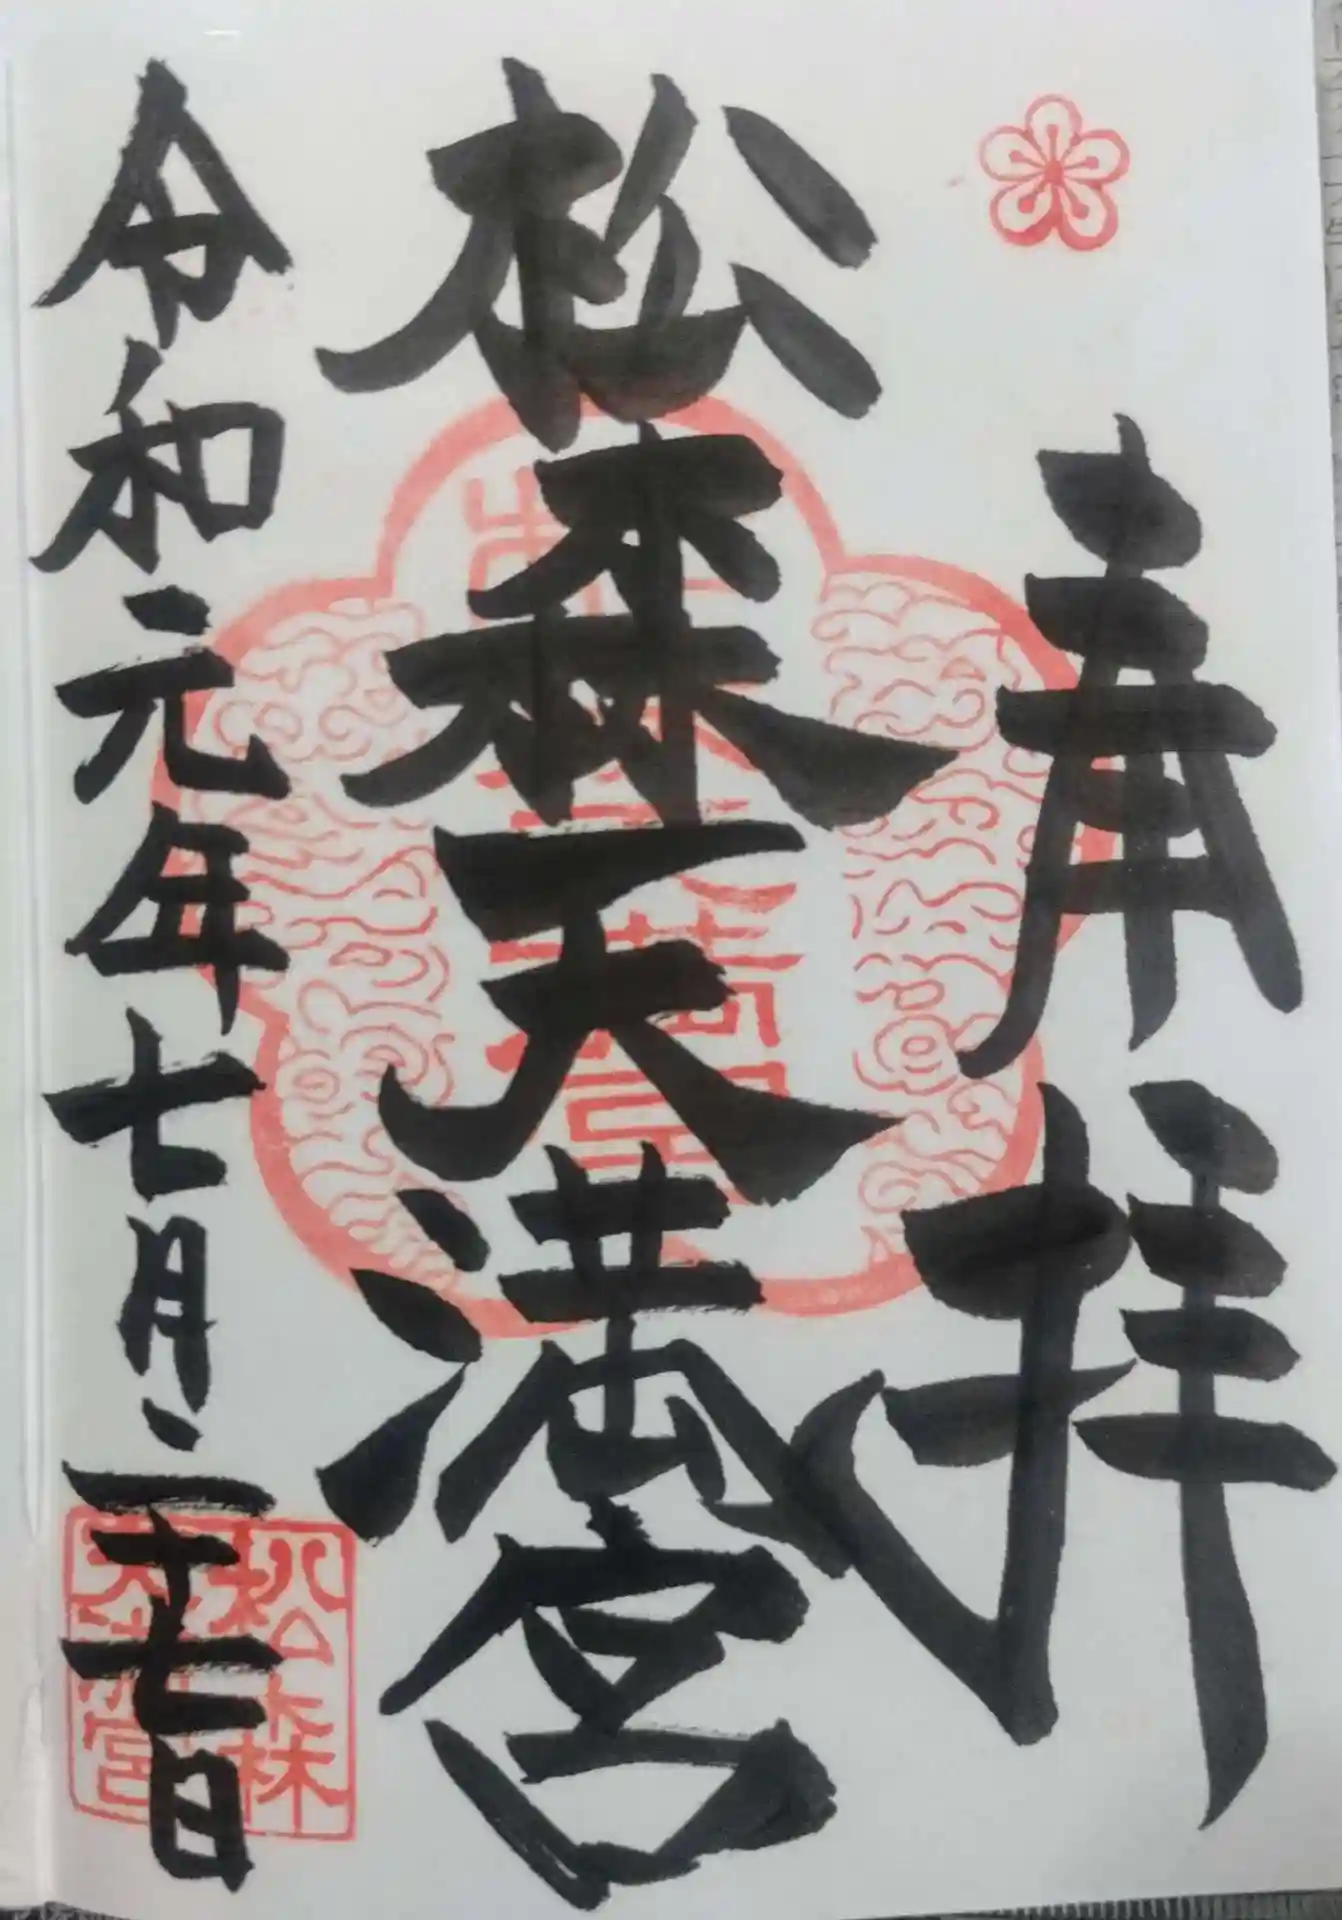 奉拝
松森天満宮
令和元年七月二十七日
松森
天満宮